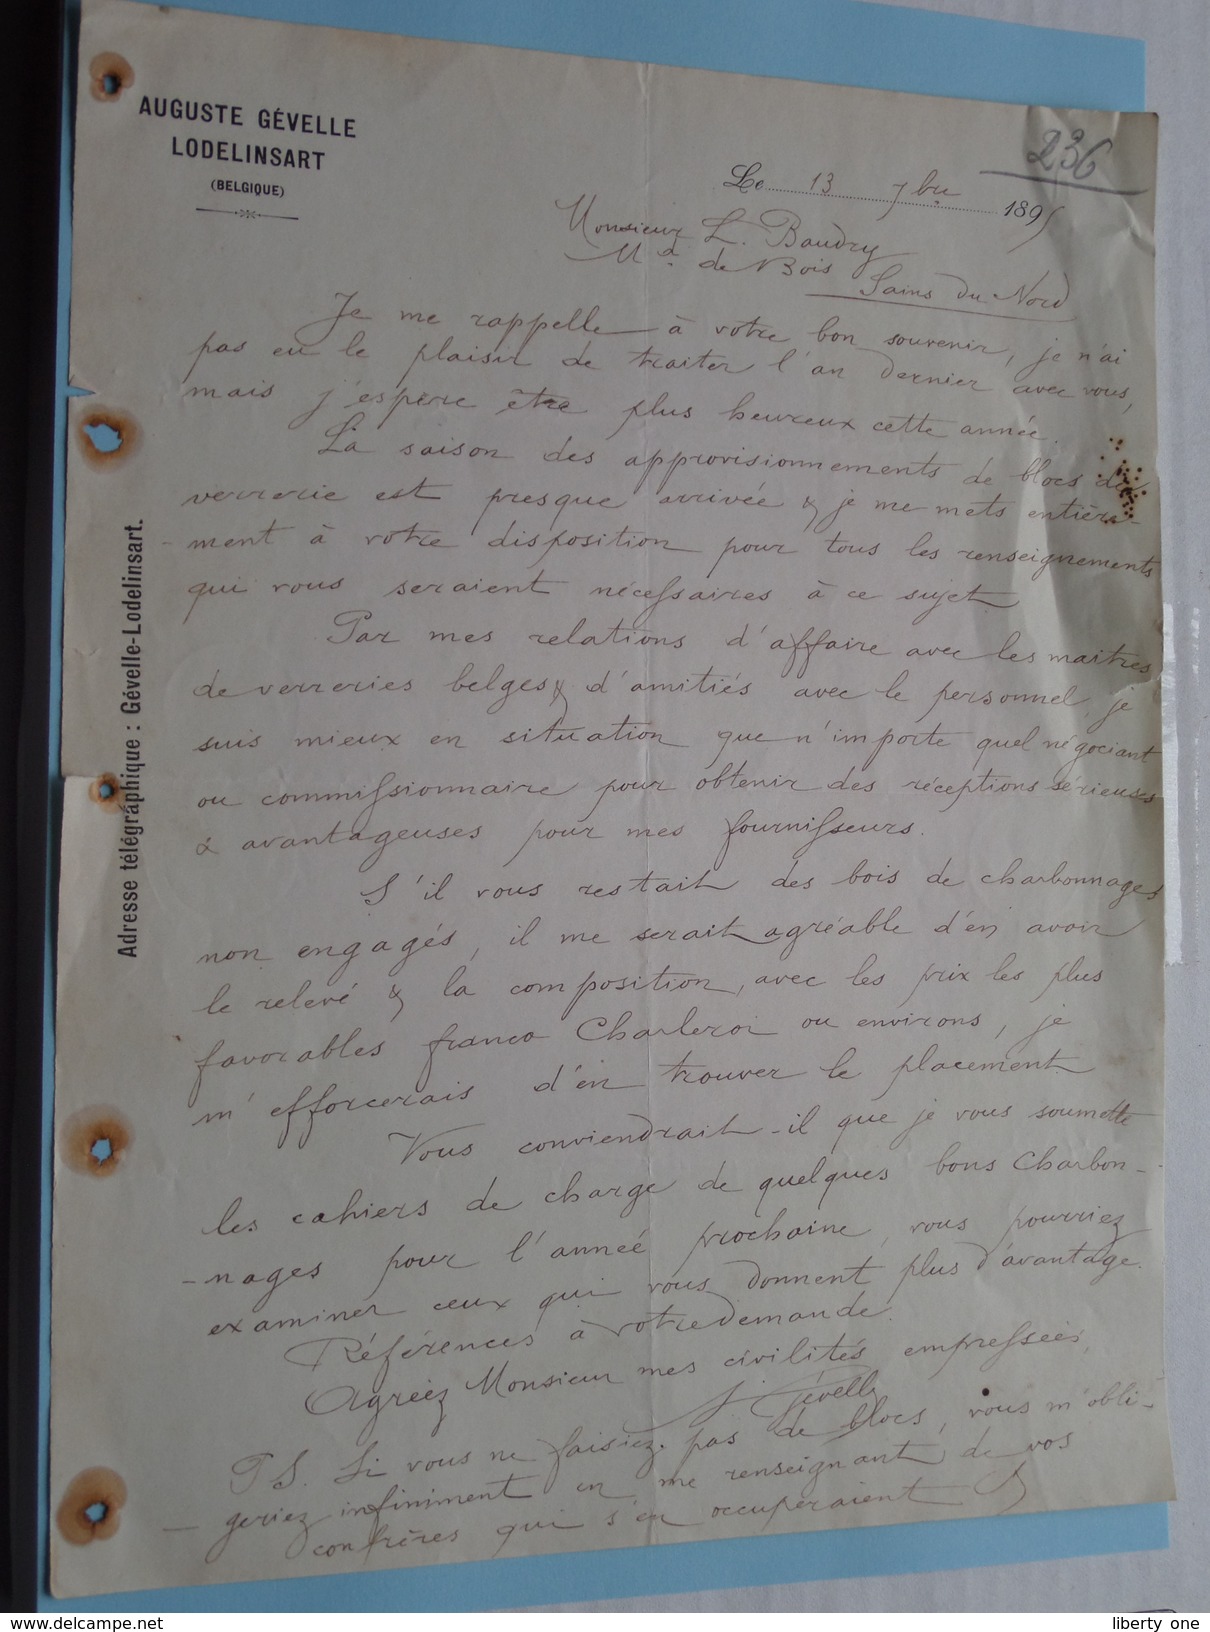 AUGUSTE GÉVELLE
LODELINSART
(BELGIQUE)
236
Le 13 7bre 1895
Monsieur L. Baudry
Md de Bois
Sains du Nord
Je me rappelle à votre bon souvenir, je n'ai
pas eu le plaisir de traiter l'an dernier avec vous,
mais j'espère être plus heureux cette année.
La saison des approvisionnements de blocs de
verrerie est presque arrivée & je me mets entière-
-ment à votre disposition pour tous les renseignements
qui vous seraient nécessaires à ce sujet
Par mes relations d'affaire avec les maitres
de verreries belges & d'amitiés avec le personnel, je
suis mieux en situation que n'importe quel négociant
ou commissionnaire pour obtenir des réceptions sérieuses
& avantageuses pour mes fournisseurs.
S'il vous restait des bois de charbonnages
non engagés, il me serait agréable d'en avoir
le relevé & la composition, avec les prix les plus
favorables franco Charleroi ou environs, je
m'efforcerais d'en trouver le placement
Vous conviendrait-il que je vous soumette
les cahiers de charge de quelques bons Charbon-
-nages pour l'année prochaine, vous pourriez
examiner ceux qui vous donnent plus d'avantage.
Références à votre demande.
Agréez Monsieur mes civilités empressées,
Gévelle
PS. Si vous ne faisiez pas de blocs, vous m'obli-
-geriez infiniment en me renseignant de vos
confrères qui s'en occuperaient
Adresse télégraphique : Gévelle-Lodelinsart.
liberty_one